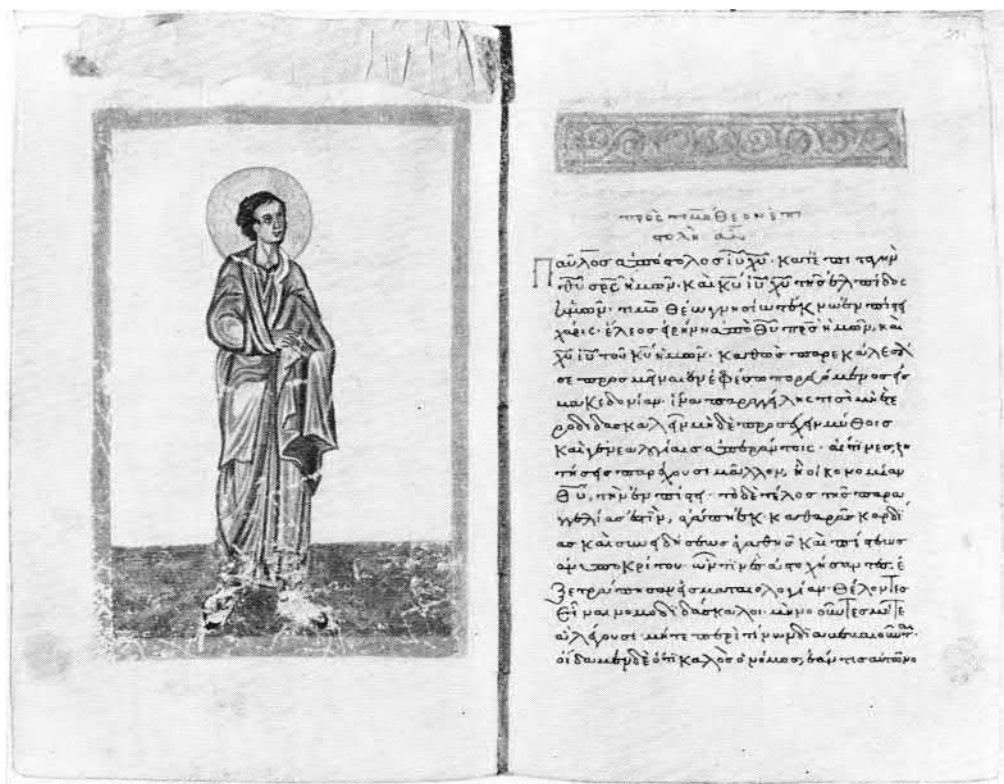 πρὸς τιμόθεον ἐπι
στολὴ α
Παῦλος ἀπόστολος ιυ χυ· κατ' ἐπιταγὴν
θυ σρς ἡμῶν· καὶ κυ ιυ χυ τῆς ἐλπίδος
ἡμῶν· τιμοθέω γνησίω τέκνω ἐν πίστει
χάρις· ἔλεος εἰρήνη ἀπὸ θυ πρς ἡμῶν, καὶ
χυ ιυ του κυ ἡμῶν· καθὼς παρεκάλεσά
σε προσμῆναι ἐν ἐφέσω πορευόμενος εἰς
μακεδονίαν· ἵνα παραγγείλης τισὶ μὴ ἑτε
ροδιδασκαλεῖν μηδὲ προσέχειν μύθοις
καὶ γενεαλογίαις ἀπεράντοις· αἵτινες ζη
τήσεις παρέχουσι μᾶλλον, ἢ οἰκονομίαν
θυ, τὴν ἐν πίστει· τὸ δὲ τέλος τῆς παρα
γγελίας ἐστὶν, ἀγάπη ἐκ καθαρᾶς καρδί
ας καὶ συνειδήσεως ἀγαθῆς καὶ πίστεως
ἀνυποκρίτου ὧν τινὲς ἀστοχήσαντες· ἐ
ξετράπησαν εἰς ματαιολογίαν· θέλοντες
εἶναι νομοδιδάσκαλοι· μὴ νοοῦντες μήτε
ἃ λέγουσι· μήτε περὶ τίνων διαβεβαιοῦνται·
οἴδαμεν δὲ ὅτι καλὸς ὁ νόμος, ἐάν τις αὐτῶ νο